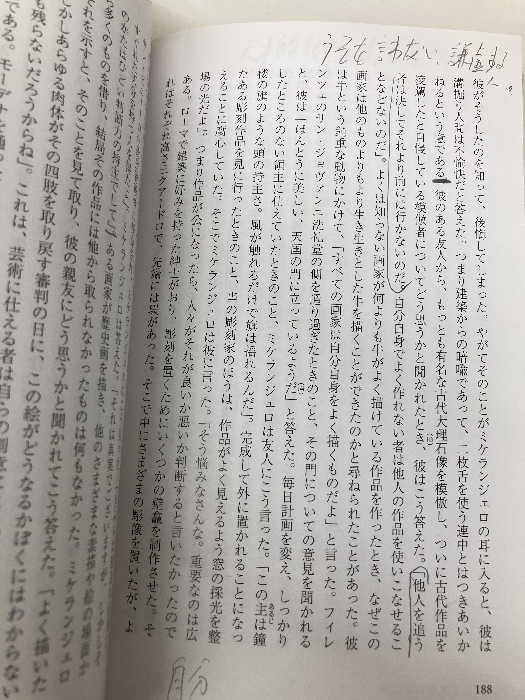 うそを言わない 謙虚する人。
彼がそうしたのを知って、後悔してしまった。やがてそのことがミケランジェロの耳に入ると、彼は
溝掘り人足は不愉快だと答えた。つまり建築からの暗喩であって、二枚舌を使う連中とはつきあいか
ねるという意である。彼のある友人から、もっとも有名な古代大理石像を模倣し、ついに古代作品を
凌駕したと自慢している模倣者についてどう思うかと聞かれたとき、彼はこう答えた。「他人を追う
者は決してそれより前には行かないのだ。自分自身でよく作れない者は他人の作品を使いこなせるこ
となどないのだ」。よくは知らない画家が何よりも牛がよく描けている作品を作ったとき、なぜこの
画家は他のものよりもより生き生きとした牛を描くことができたのかと尋ねられたことがあった。彼
は牛という鈍重な動物にかけて、「すべての画家は自分自身をよく描くものだよ」と言った。フィレ
ンツェのサン・ジョヴァンニ洗礼堂の側を通り過ぎたときのこと、その門についての意見を聞かれる
と、彼は「ほんとうに美しい、天国の門に立っているようだ」と答えた。毎日計画を変え、しっかり
したところのない領主に仕えていたときのこと、ミケランジェロは友人にこう言った。「この主は鐘
楼の旗のような頭の持主さ。風が触れるだけで旗は揺れるんだ」。完成して外に置かれることになっ
たある彫刻作品を見に行ったときのこと、当の彫刻家のほうは、作品がよく見えるよう窓の採光を整
えることに腐心していた。そこでミケランジェロは彼に言った。「そう悩みなさんな。重要なのは広
場の光だよ」。つまり作品が公になったら、人々がそれが良いか悪いか判断すると言いたかったので
ある。ローマで建築に好みを持った紳士がおり、彫刻を置くためにいくつかの壁龕を制作させた。そ
れはそれぞれ高さ三クァードロで、先端には環があった。そこで中にさまざまな彫像を置いたが、よ
自分
188
ある画家が歴史画を描き、他のさまざまな素描や絵の場面か
ら多くのものを借り、結局その作品には他から取られなかったものは何もなかった。ミケランジェロ
にそれを示すと、そのことを見て取り、彼の親友にどう思うかと聞かれ、こう答えた。「よく描いた
しかしあらゆる肉体がその四肢を取り戻す審判の日に、この絵がどうなるかぼくにはわからない
も残らないだろうからね」。これは、芸術に仕える者は自らの
である。モーデナを通